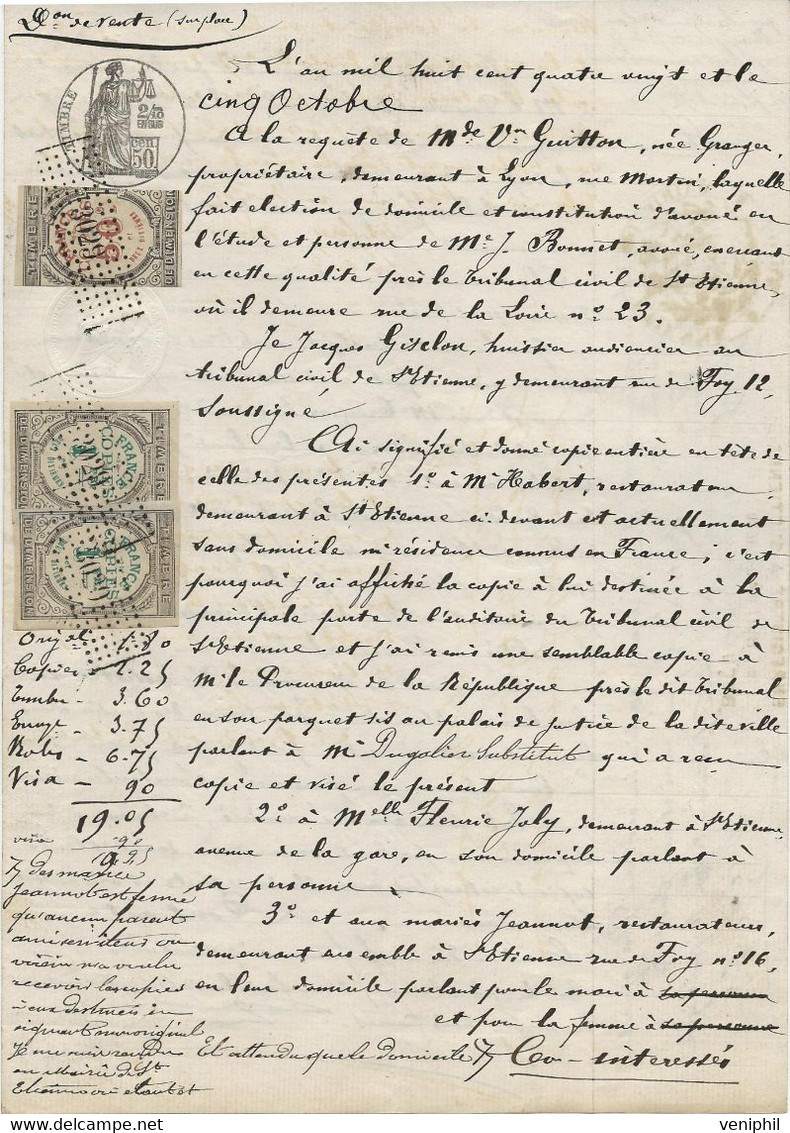 Don de vente (sur place)
L'an mil huit cent quatre vingt et le
cinq Octobre
A la requête de Mde Vve Guitton, née Granger,
propriétaire, demeurant à Lyon, rue Martin, laquelle
fait election de domicile et constitution d'avoué en
l'étude et personne de Me J. Bonnet, avoué, exerçant
en cette qualité près le Tribunal civil de St Etienne,
où il demeure rue de la Loire no 23.
Je Jacques Giselon, huissier audiencier au
tribunal civil de St Etienne, y demeurant rue de Foy 12,
soussigné
Ai signifié et donné copie entière en tête de
celle des présentes 1o à Mr Habert, restaurateur
demeurant à St Etienne ci-devant et actuellement
sans domicile ni résidence connus en France; c'est
pourquoi j'ai affiché la copie à lui destinée à la
principale porte de l'auditoire du Tribunal civil de
St Etienne et j'ai remis une semblable copie à
Mr le Procureur de la République près le dit Tribunal
en son parquet sis au palais de justice de la dite ville
parlant à Mr Dugalier Substitut qui a reçu
copie et visé le présent
2o à Melle Fleurie Joly, demeurant à St Etienne
avenue de la gare, en son domicile parlant à
sa personne
3o et aux mariés Jeannot, restaurateurs,
demeurant ensemble à St Etienne rue de Foy no 16,
en leur domicile parlant pour le mari à sa personne
et pour la femme à sa personne
Et attendu que le domicile Co-interessés
TIMBRE
2/10 EN SUS
50 cen
TIMBRE
DE DIMENSION
3029
TIMBRE
FRANCE
COPIES
DE DIMENSION
TIMBRE
FRANCE
COPIES
DE DIMENSION
Origal 1.80
Copies 2.25
Timbre 3.60
Enreg 3.75
Roles 6.75
Visa 90
19.05
visa .90
des mariés
Jeannot est fermé
qu'aucun parent
ami serviteur ou
voisin n'a voulu
recevoir les copies
à eux destinées en
signant mon original
Je me suis rendu
en Mairie de St
Etienne où étant et
veniphil.com